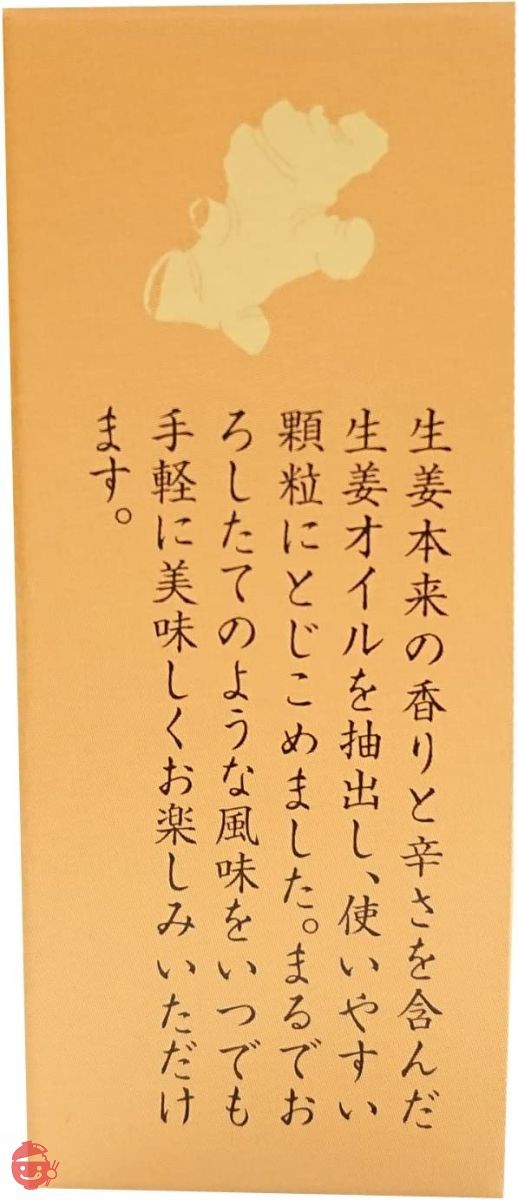 生姜本来の香りと辛さを含んだ
生姜オイルを抽出し、使いやすい
顆粒にとじこめました。まるでお
ろしたてのような風味をいつでも
手軽に美味しくお楽しみいただけ
ます。